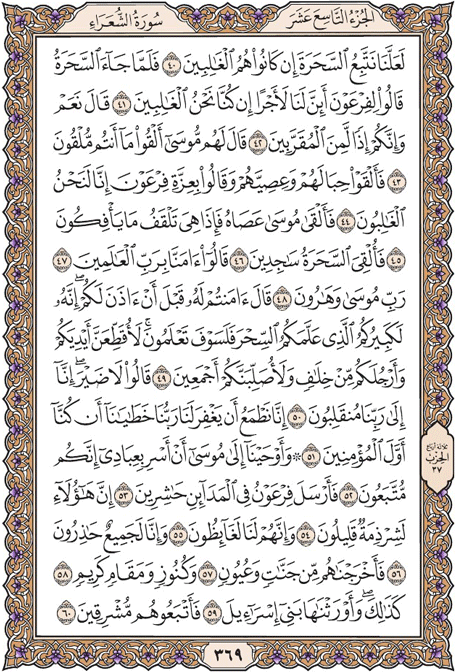 الجزء التاسع عشر سورة الشعراء
لَعَلَّنَا نَتَّبِعُ السَّحَرَةَ إِن كَانُوا۟ هُمُ الْغَٰلِبِينَ ٤٠ فَلَمَّا جَآءَ السَّحَرَةُ
قَالُوا۟ لِفِرْعَوْنَ أَئِنَّ لَنَا لَأَجْرًا إِن كُنَّا نَحْنُ الْغَٰلِبِينَ ٤١ قَالَ نَعَمْ
وَإِنَّكُمْ إِذًا لَّمِنَ الْمُقَرَّبِينَ ٤٢ قَالَ لَهُم مُّوسَىٰٓ أَلْقُوا۟ مَآ أَنتُم مُّلْقُونَ
٤٣ فَأَلْقَوْا۟ حِبَالَهُمْ وَعِصِيَّهُمْ وَقَالُوا۟ بِعِزَّةِ فِرْعَوْنَ إِنَّا لَنَحْنُ
الْغَٰلِبُونَ ٤٤ فَأَلْقَىٰ مُوسَىٰ عَصَاهُ فَإِذَا هِىَ تَلْقَفُ مَا يَأْفِكُونَ
٤٥ فَأُلْقِىَ السَّحَرَةُ سَٰجِدِينَ ٤٦ قَالُوٓا۟ ءَامَنَّا بِرَبِّ الْعَٰلَمِينَ ٤٧
رَبِّ مُوسَىٰ وَهَٰرُونَ ٤٨ قَالَ ءَامَنتُمْ لَهُۥ قَبْلَ أَنْ ءَاذَنَ لَكُمْ ۖ إِنَّهُۥ
لَكَبِيرُكُمُ الَّذِى عَلَّمَكُمُ السِّحْرَ فَلَسَوْفَ تَعْلَمُونَ ۚ لَأُقَطِّعَنَّ أَيْدِيَكُمْ
وَأَرْجُلَكُم مِّنْ خِلَٰفٍ وَلَأُصَلِّبَنَّكُمْ أَجْمَعِينَ ٤٩ قَالُوا۟ لَا ضَيْرَ ۖ إِنَّآ
إِلَىٰ رَبِّنَا مُنقَلِبُونَ ٥٠ إِنَّا نَطْمَعُ أَن يَغْفِرَ لَنَا رَبُّنَا خَطَٰيَٰنَآ أَن كُنَّآ
أَوَّلَ الْمُؤْمِنِينَ ٥١ ۞ وَأَوْحَيْنَآ إِلَىٰ مُوسَىٰٓ أَنْ أَسْرِ بِعِبَادِىٓ إِنَّكُم
مُّتَّبَعُونَ ٥٢ فَأَرْسَلَ فِرْعَوْنُ فِى الْمَدَآئِنِ حَٰشِرِينَ ٥٣ إِنَّ هَٰٓؤُلَآءِ
لَشِرْذِمَةٌ قَلِيلُونَ ٥٤ وَإِنَّهُمْ لَنَا لَغَآئِظُونَ ٥٥ وَإِنَّا لَجَمِيعٌ حَٰذِرُونَ
٥٦ فَأَخْرَجْنَٰهُم مِّن جَنَّٰتٍ وَعُيُونٍ ٥٧ وَكُنُوزٍ وَمَقَامٍ كَرِيمٍ ٥٨
كَذَٰلِكَ ۖ وَأَوْرَثْنَٰهَا بَنِىٓ إِسْرَٰٓءِيلَ ٥٩ فَأَتْبَعُوهُم مُّشْرِقِينَ ٦٠
الحزب
٣٧
٣٦٩